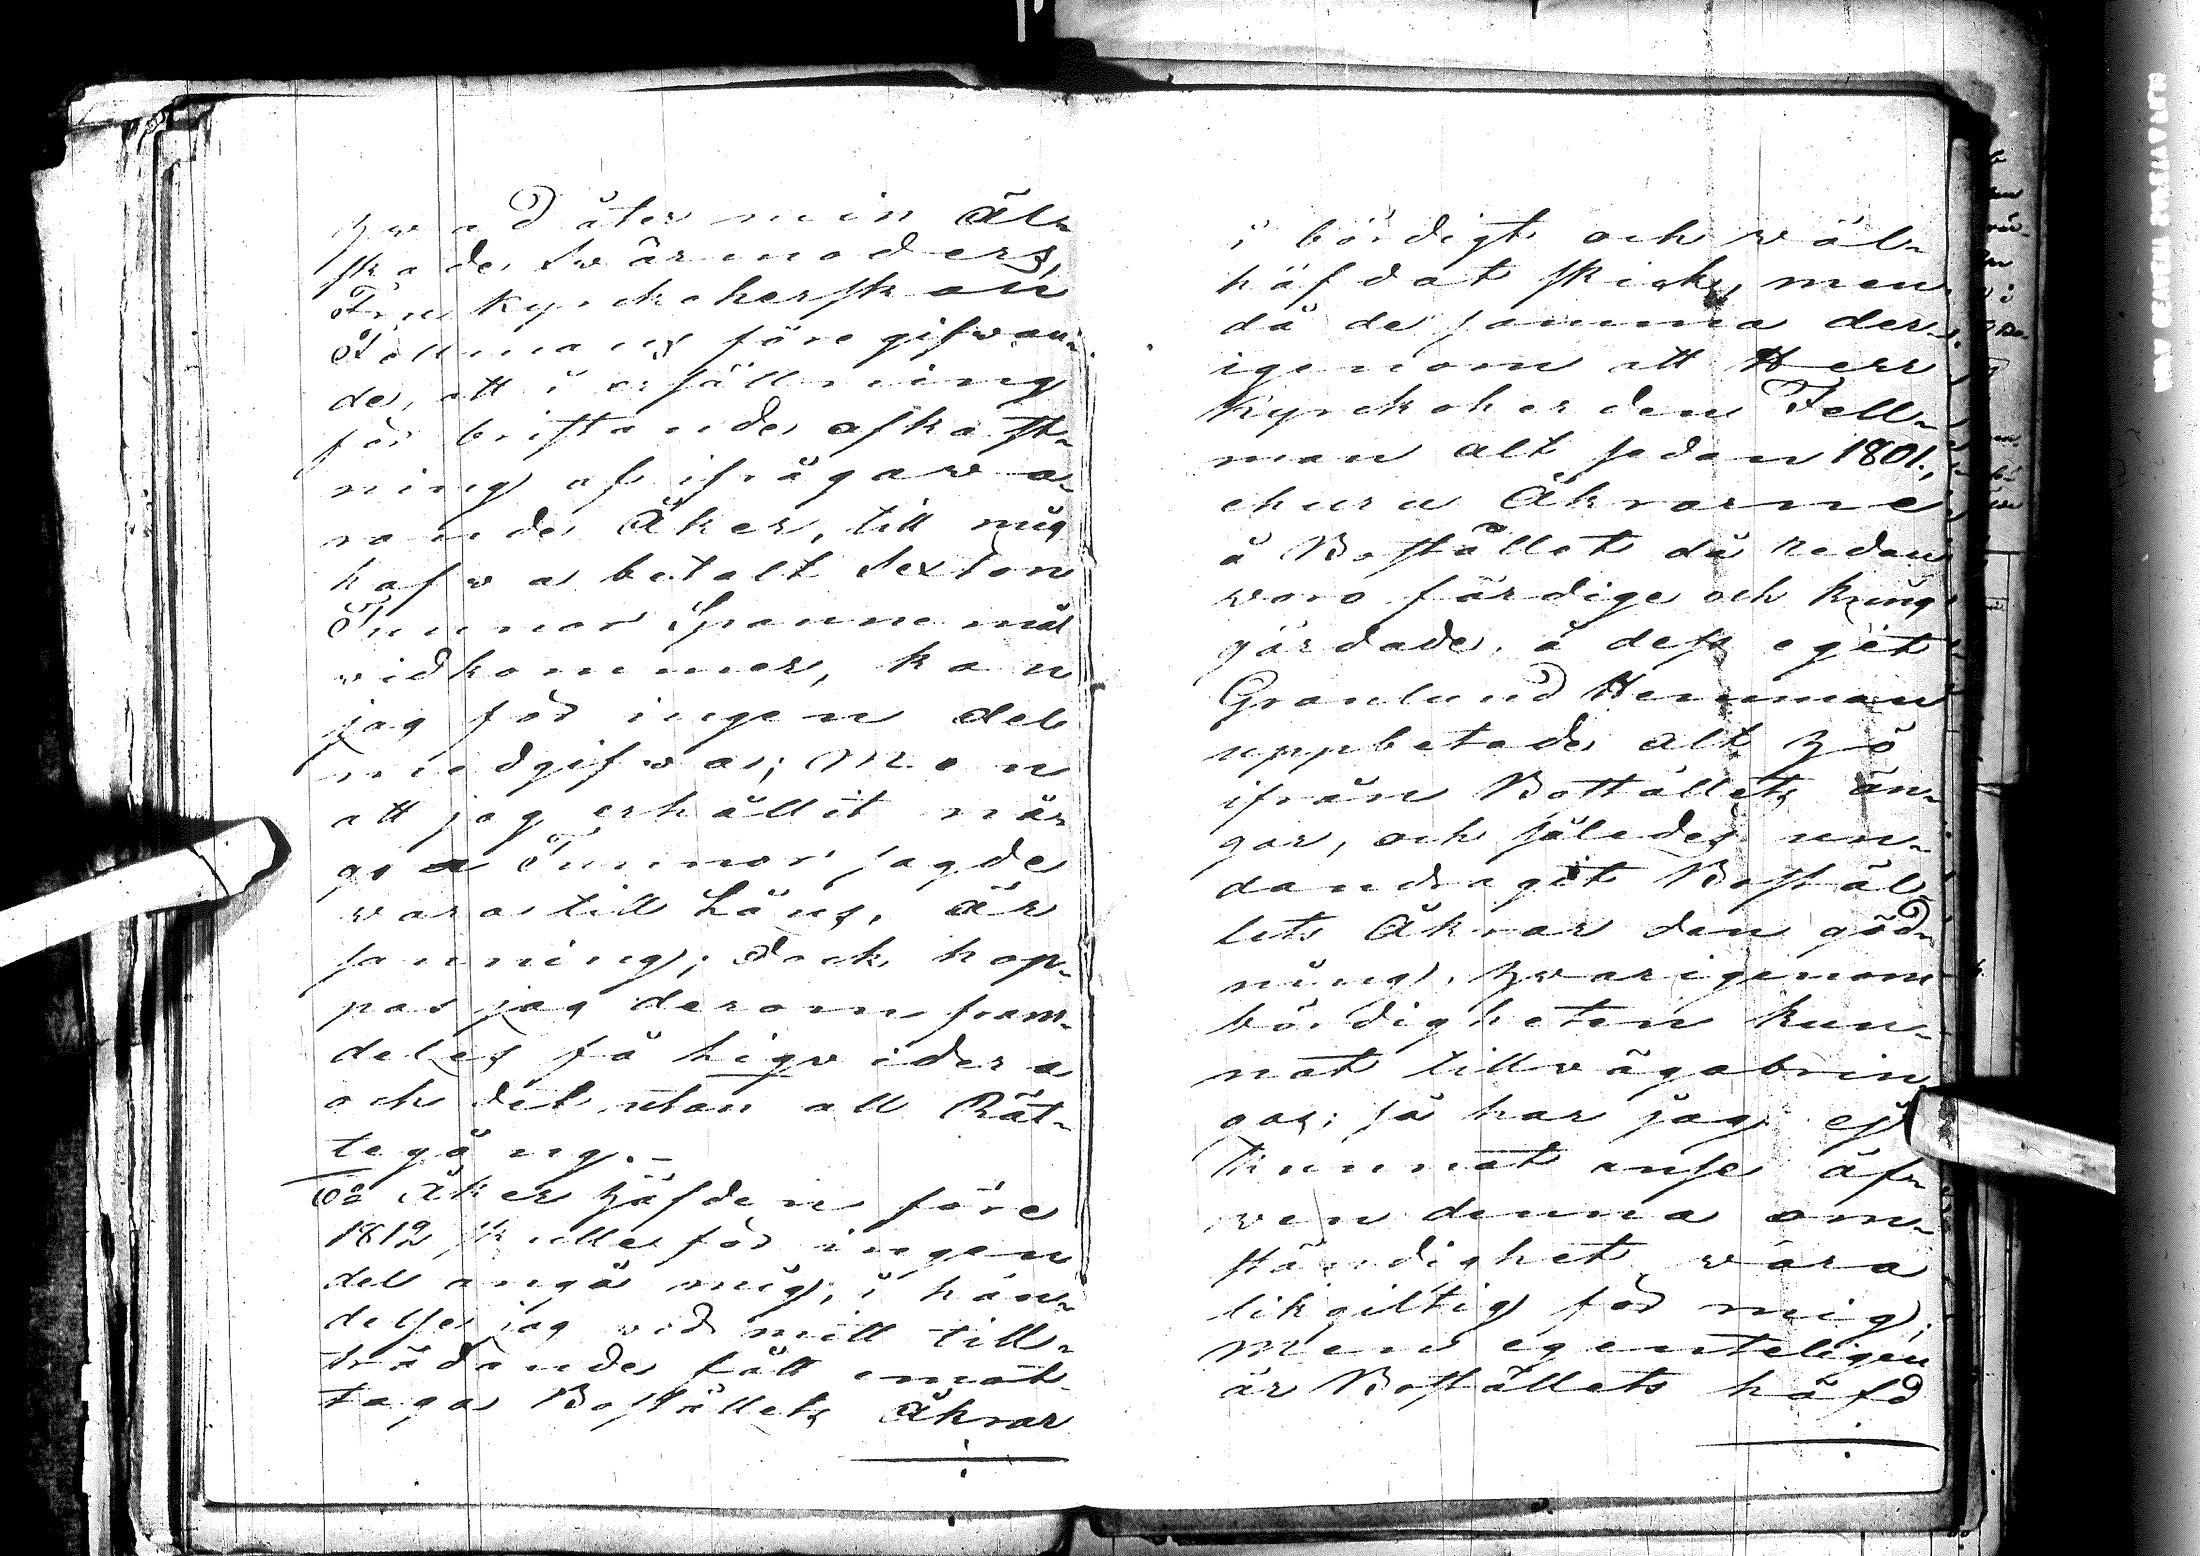 Hwad åter min äl-
skade Swärmoders,
Fru Kyrckoherskan
Fellmans föregifwan-
de, att i ersättning
för bristande afkast-
ning af ifrågawa-
rande Åker, till mig
hafwa betalt Sexton
Tunnor Spannemål
widkommer, kan
jag för ingen del
medgifwa; Men
att jag erhållit någ-
ra Tunnor sagde
wara till Låns, är
sanning; dock hop-
pas jag derom fram-
deles få liqvidera
och det utan all Rät-
tegång.-
Åker Häfden före
1812 skulle för ingen
del angå mig, i hän-
delse jag wid mitt till-
trädande fått emot-
taga Boställets Åkrar
i bördigt och wäl-
häfdat skick, men
då de samma der-
igenom att Herr
Kyrckoherden Fell-
man alt sedan 1801,
ehuru Åkrarne
å Bostället då redan
woro färdige och kring-
gärdade, å dess eget
Granlund Hemman
uppbetade alt Hö
ifrån Boställets än-
gar, och således un-
dandragit Bostäl-
lets Åkrar den göd-
ning, hwarigenom
bördigheten kun-
nat tillwägabrin-
gas; så har jag ej
kunnat anse äf-
wen denna om-
ständighet wara
likgiltig för mig;
Men egenteligen
är Boställets häfd